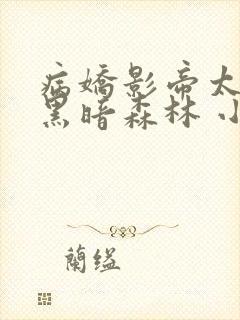 病嬌影帝太
黑暗森林 小
蘭缢